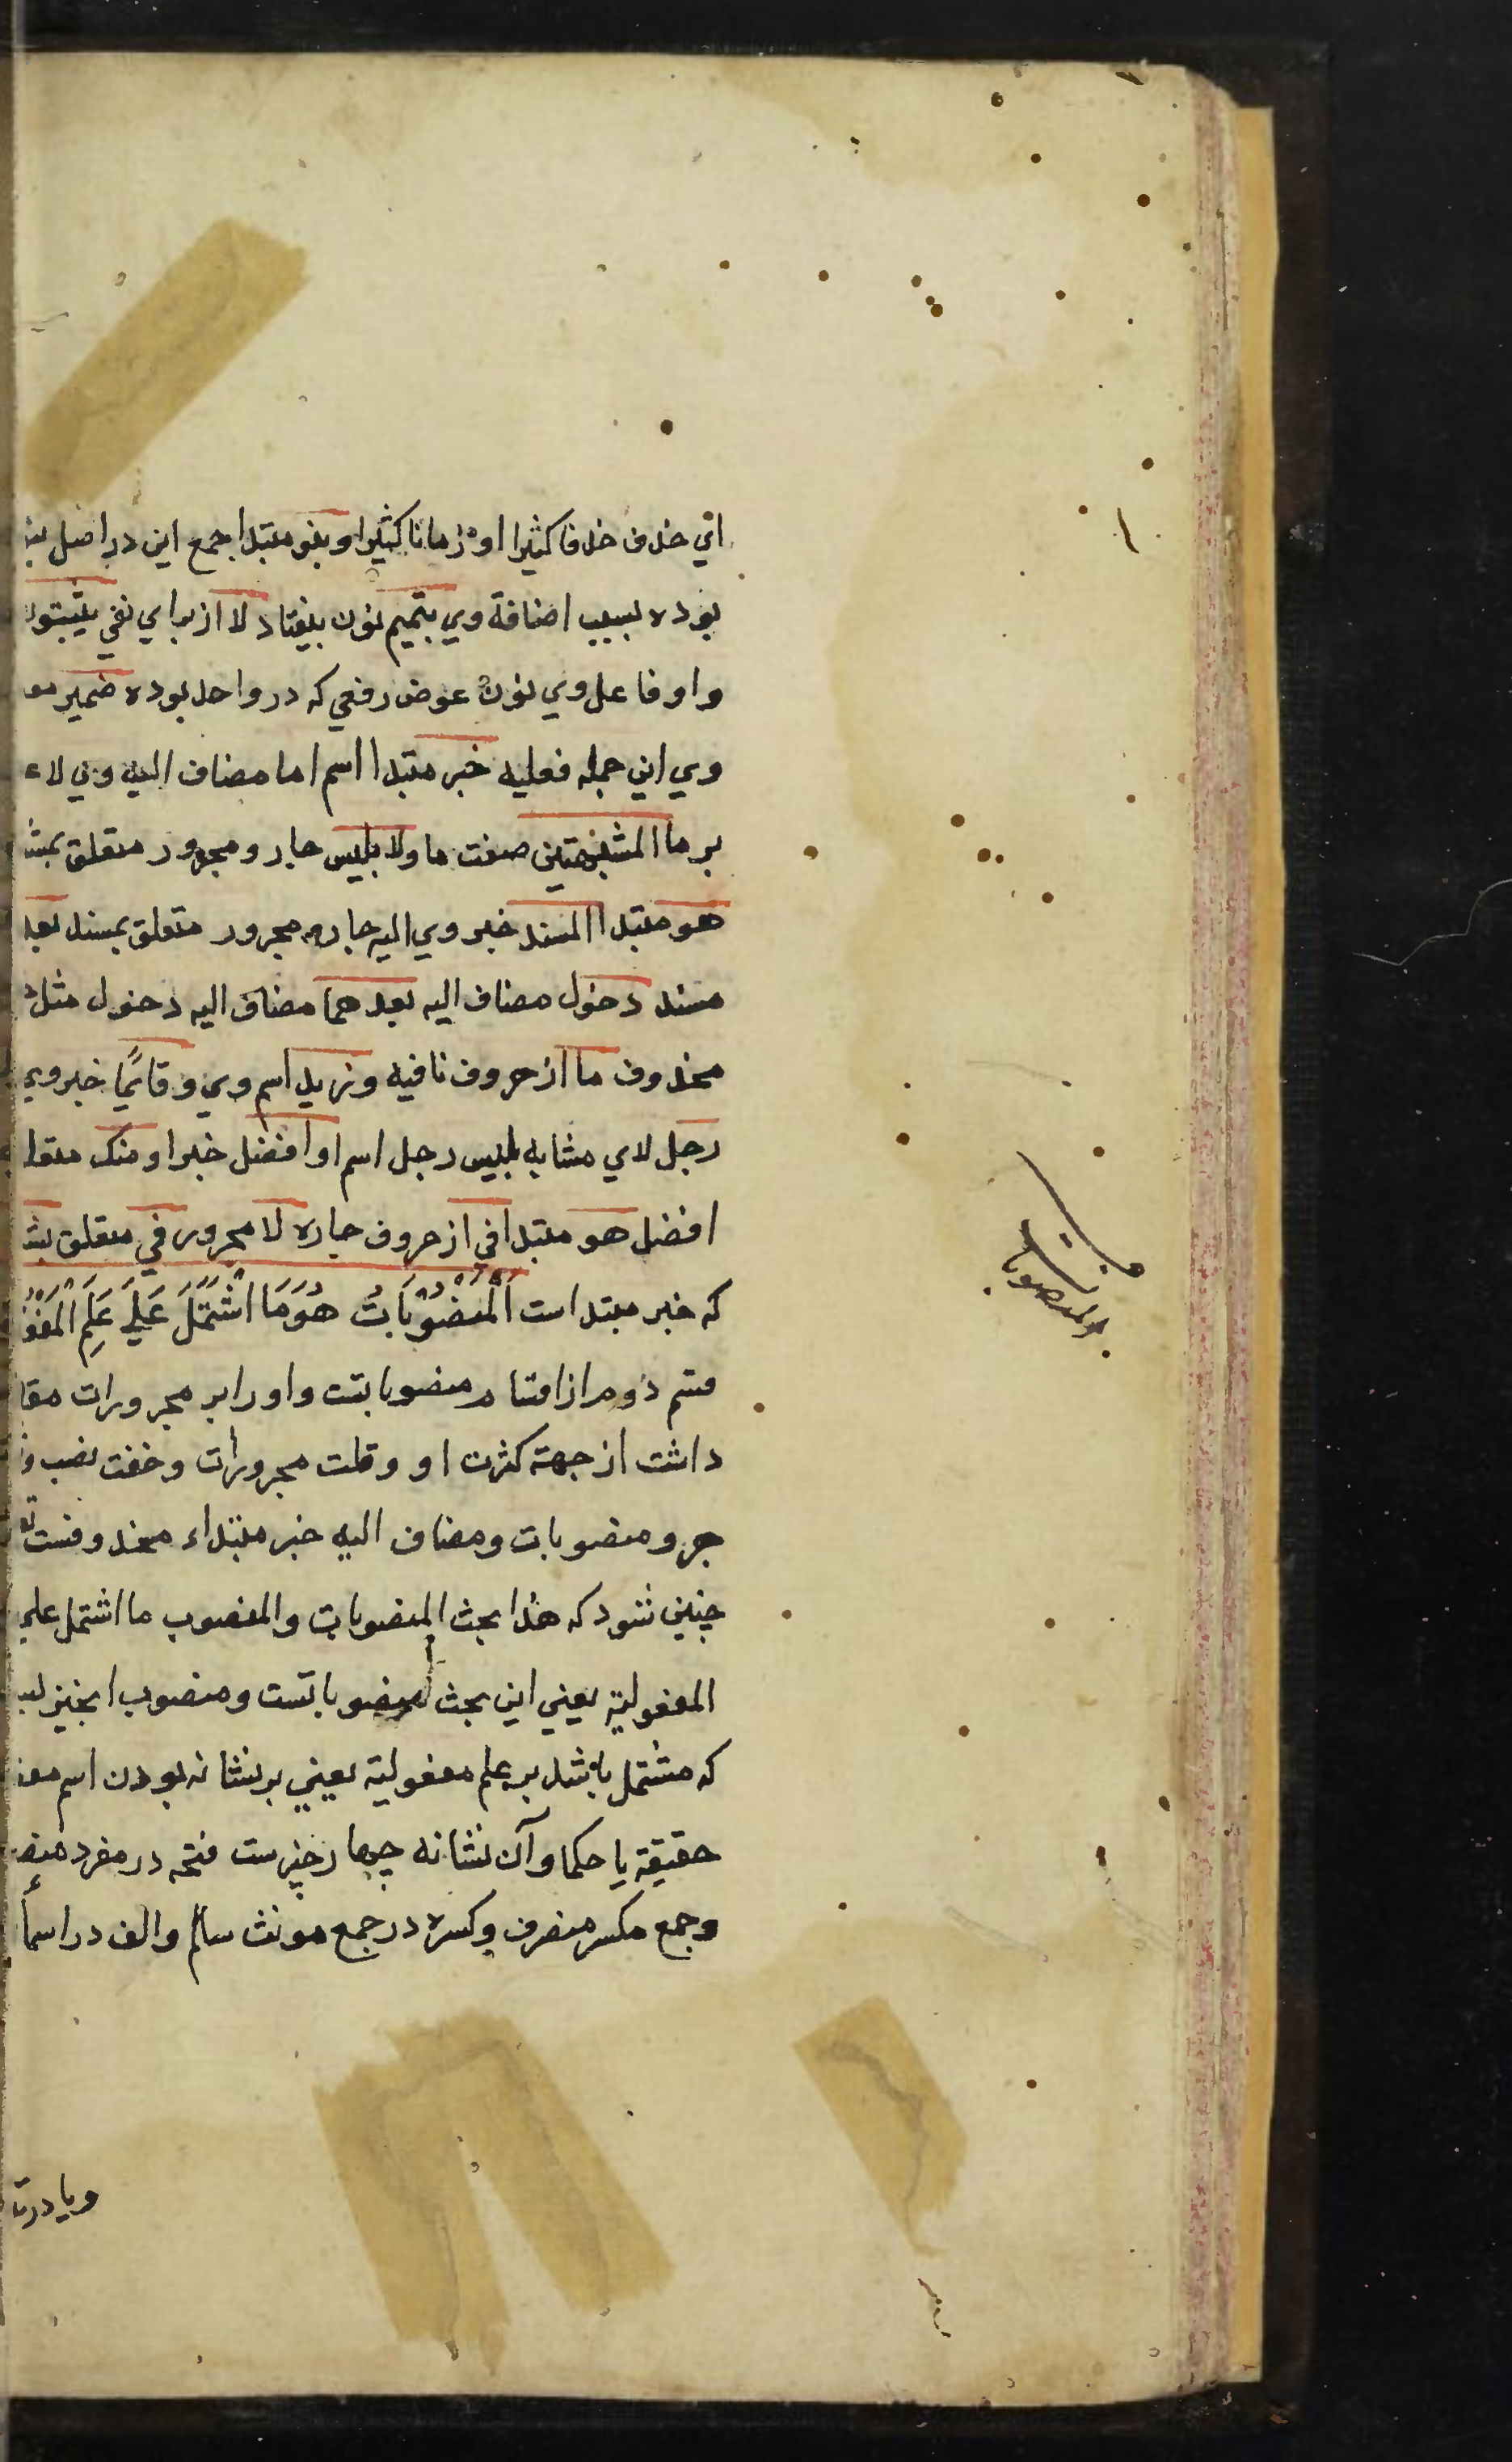 اي حذف حذفا كثيرا او زمانا كثيرا وبنو مبتدا جمع ابن در اصل
بوده بسبب اضافة وي بتميم نون بيفتاد لا از براي نفي يثبتو
واو فاعل وي نون عوض رفعي كه در واحد بوده ضمير
وي اين جمله فعليه خبر مبتدا اسم اما مضاف اليه وي لا
بر ما المشبهتين صفت ما ولا بليس جار ومجرور متعلق
هو مبتدا المسند خبر وي اليه جار مجرور متعلق بمسند بعد
مسند دخول مضاف اليه بعد هما مضاف اليه دخول مثل
محذوف ما از حروف نافيه وزيد اسم وي وقائمًا خبر وي
رجل لاي مشابه بليس رجل اسم او افضل خبر او منك
افضل هو مبتدا في از حروف جاره لا مجرور في متعلق
كه خبر مبتدا است اَلْمَنْصُوْبَاتُ هُوَمَا اشْتَمَلَ عَلَي عَلَمِ
قسم دوم از اقسام منصوباتست واو را بر مجرورات
داشت از جهة كثرت او وقلت مجرورات وخفت نصب
جر ومنصوبات ومضاف اليه خبر مبتداء محذوفست
چنين شود كه هذا بحث المنصوبات والمنصوب ما اشتمل علي
المفعولية يعني اين بحث منصوباتست ومنصوب انچيز
كه مشتمل باشد بر علم مفعولية يعني بر نشانه بودن اسم
حقيقة يا حكما وآن نشانه چهار چيزست فتحه در مفرد
وجمع مكسر منصرف وكسره در جمع مونث سالم والف در اسما
ويا در
المنصوبات